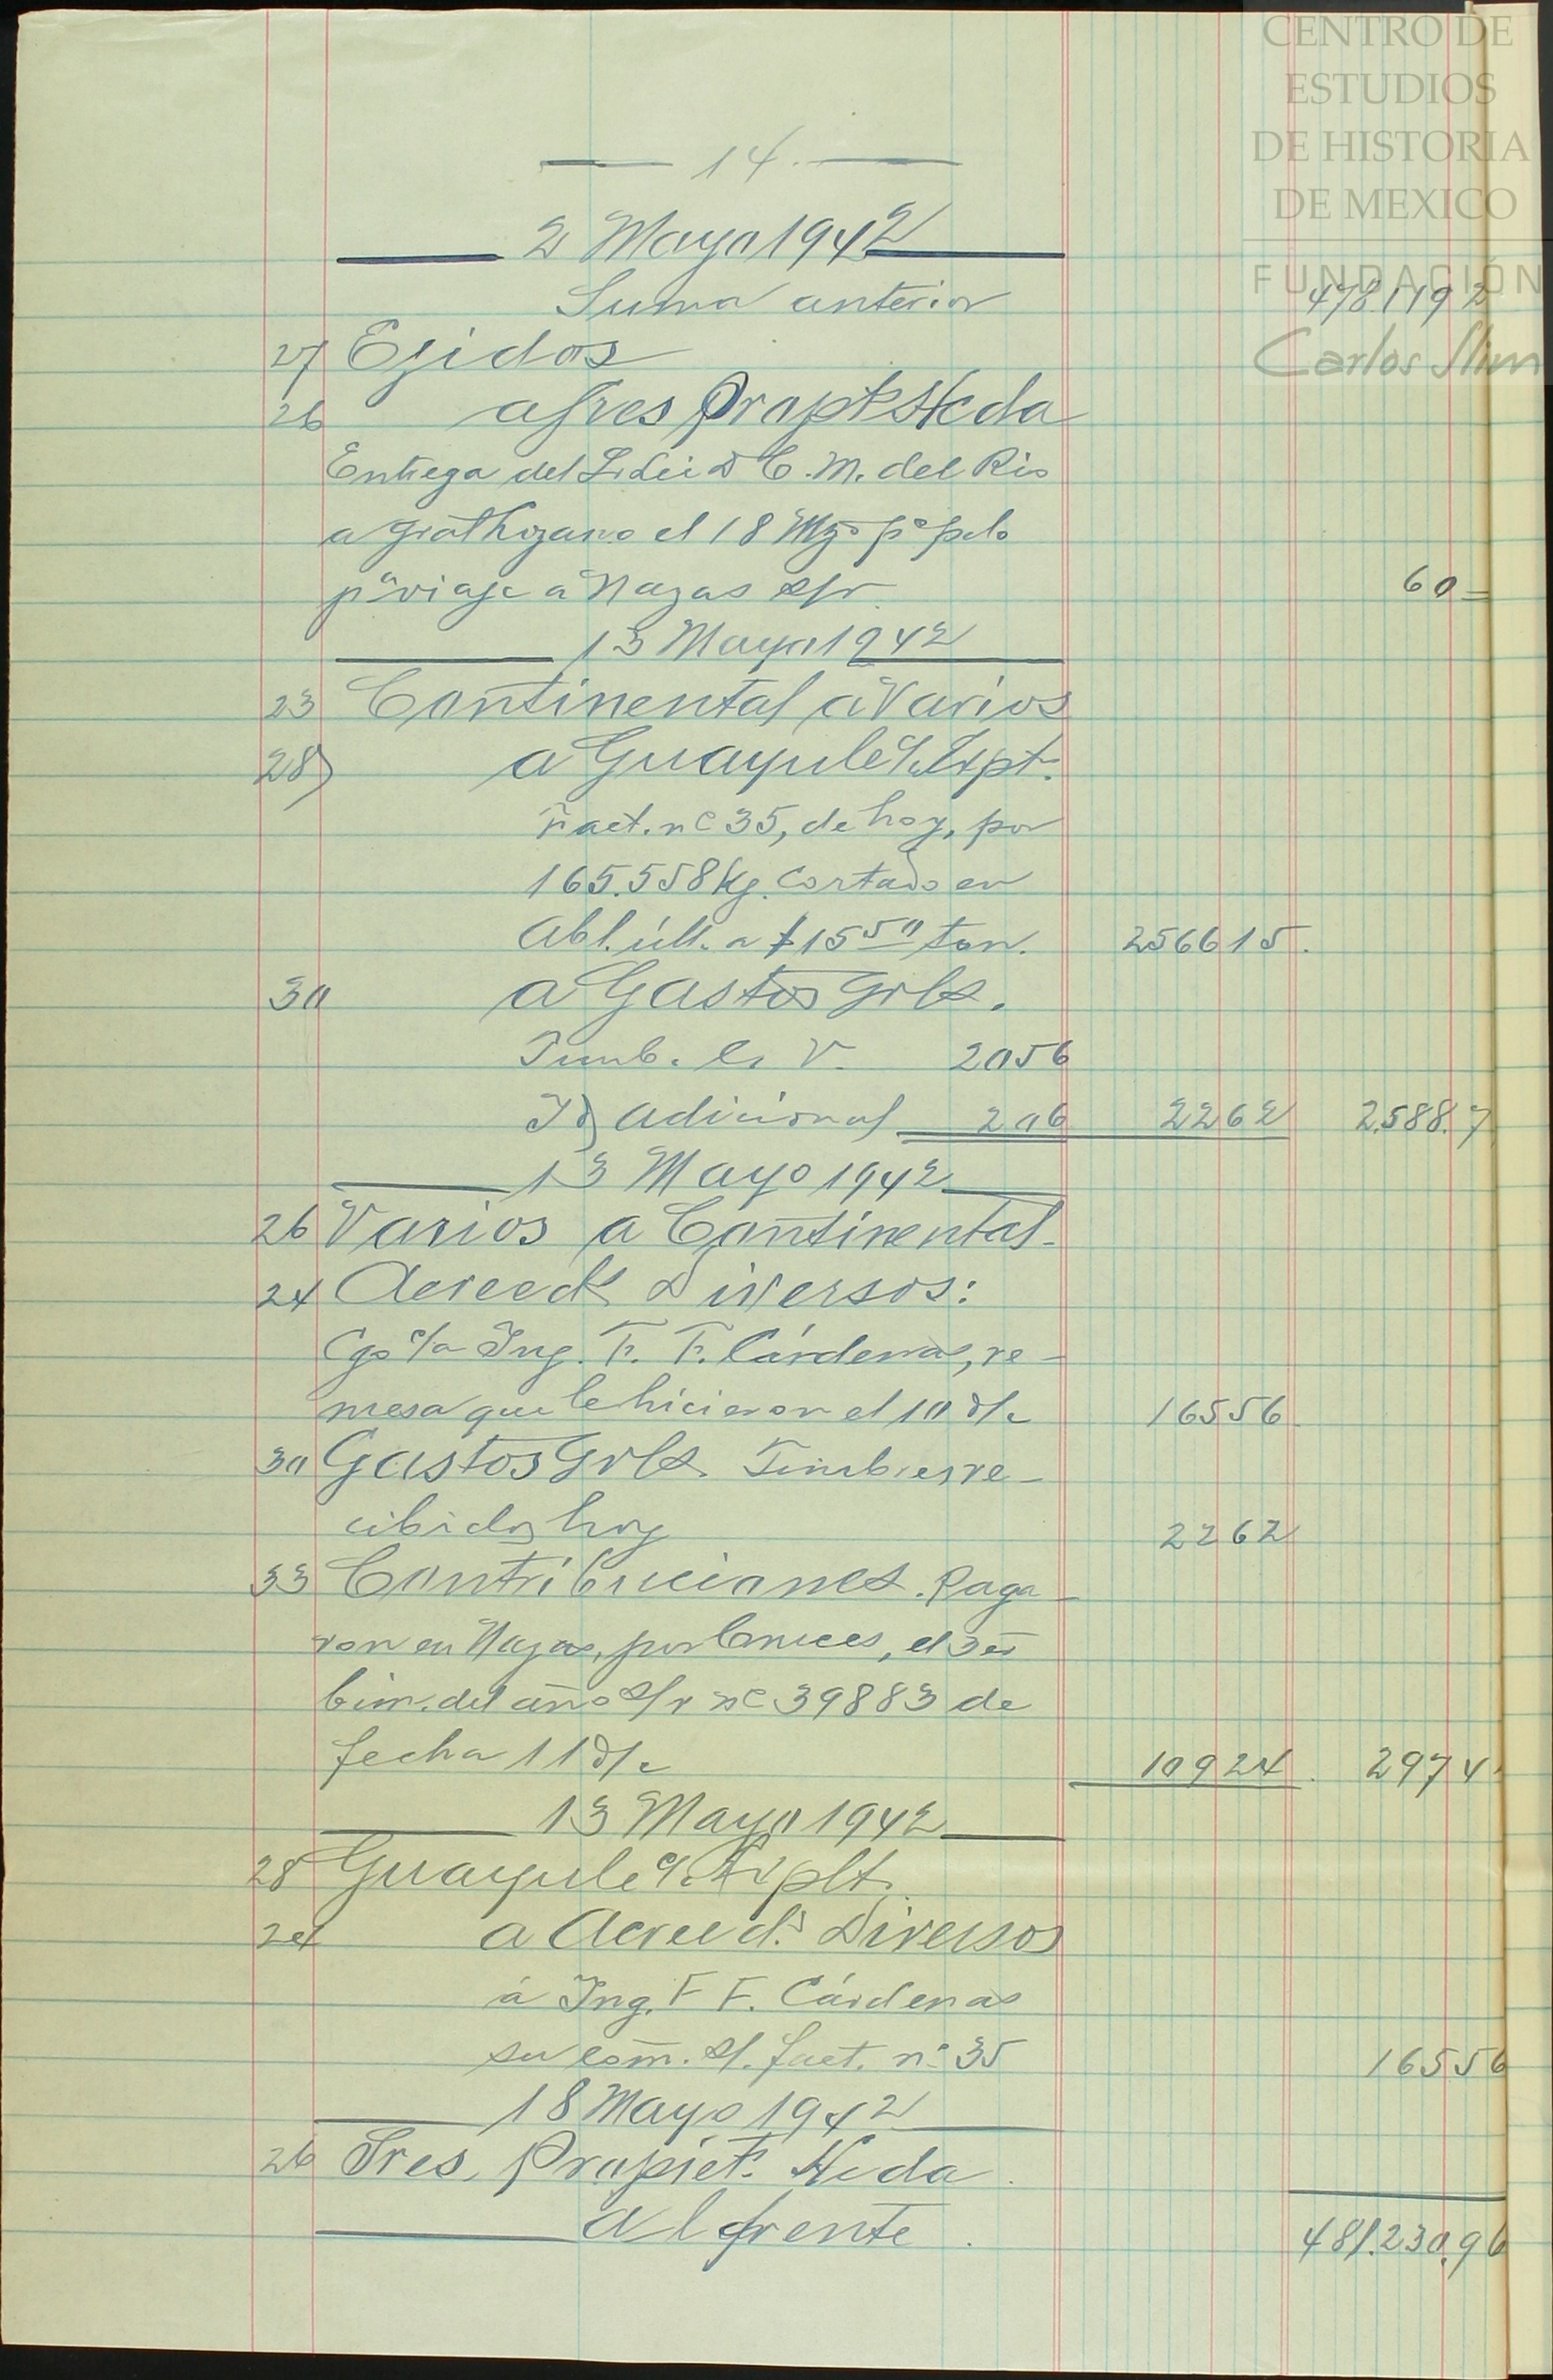 CENTRO DE
ESTUDIOS
DE HISTORIA
DE MEXICO
FUNDACIÓN
Carlos Slim
14.
2 Mayo 1942
Suma anterior 478.119 2
27 Ejidos
26 a Sres Propts Hcda
Entrega del Sr Lic D C. M. del Rio
a Lozano el 18 Mzo po pdo
pa viaje a Nazas s/r. 60=
13 Mayo 1942
23 Continental a Varios
28) a Guayule c/. Expt.
Fact. no 35, de hoy, por
165.558 Kg. cortado en
Abl. últ. a $15 50 ton. 256615.
30 a Gastos Grls.
Timb. C. V. 2056
Id adicional 206 2262 2.588.7
13 Mayo 1942
26 Varios a Continental.
24 Acreeds Diversos:
Cgo c/a Ing. F. F. Cárdenas, re-
mesa que le hicieron el 10 d/c 16556.
30 Gastos Grls. Timbres re-
cibidos hoy 2262
33 Contribuciones. Paga-
ron en Nazas, por Cruces, el 3er
bim. del año s/r no 39883 de
fecha 11 d/c 10924. 2974
13 Mayo 1942
28 Guayule c/. Explt.
24 a Acreed.s Diversos
á Ing. F F. Cárdenas
su com. s/. fact. no 35 16556
18 Mayo 1942
26 Sres. Propiet.s Hcda.
Al frente. 481.230.96